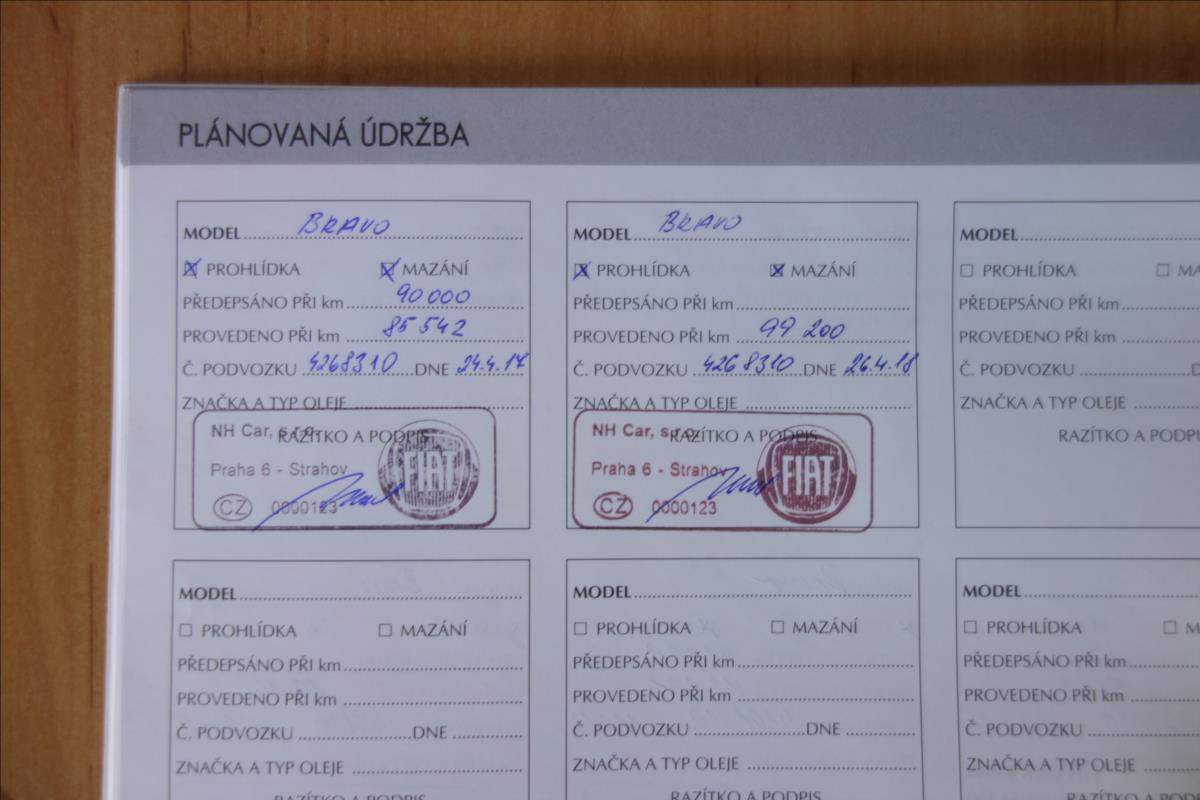 PLÁNOVANÁ ÚDRŽBA
MODEL BRAVO
☒ PROHLÍDKA ☒ MAZÁNÍ
PŘEDEPSÁNO PŘI km 90 000
PROVEDENO PŘI km 85 542
Č. PODVOZKU 4268310 DNE 24.4.17
ZNAČKA A TYP OLEJE
RAZÍTKO A PODPIS
NH Car, s.r.o.
Praha 6 - Strahov
CZ 0000123
FIAT
MODEL BRAVO
☒ PROHLÍDKA ☒ MAZÁNÍ
PŘEDEPSÁNO PŘI km
PROVEDENO PŘI km 99 200
Č. PODVOZKU 4268310 DNE 26.4.18
ZNAČKA A TYP OLEJE
RAZÍTKO A PODPIS
NH Car, s.r.o.
Praha 6 - Strahov
CZ 0000123
FIAT
MODEL
☐ PROHLÍDKA ☐ MA
PŘEDEPSÁNO PŘI km
PROVEDENO PŘI km
Č. PODVOZKU D
ZNAČKA A TYP OLEJE
RAZÍTKO A PODPI
MODEL
☐ PROHLÍDKA ☐ MAZÁNÍ
PŘEDEPSÁNO PŘI km
PROVEDENO PŘI km
Č. PODVOZKU DNE
ZNAČKA A TYP OLEJE
RAZÍTKO A PODPIS
MODEL
☐ PROHLÍDKA ☐ MAZÁNÍ
PŘEDEPSÁNO PŘI km
PROVEDENO PŘI km
Č. PODVOZKU DNE
ZNAČKA A TYP OLEJE
RAZÍTKO A PODPIS
MODEL
☐ PROHLÍDKA ☐ M
PŘEDEPSÁNO PŘI km
PROVEDENO PŘI km
Č. PODVOZKU
ZNAČKA A TYP OLEJE
RAZÍTKO A PODP